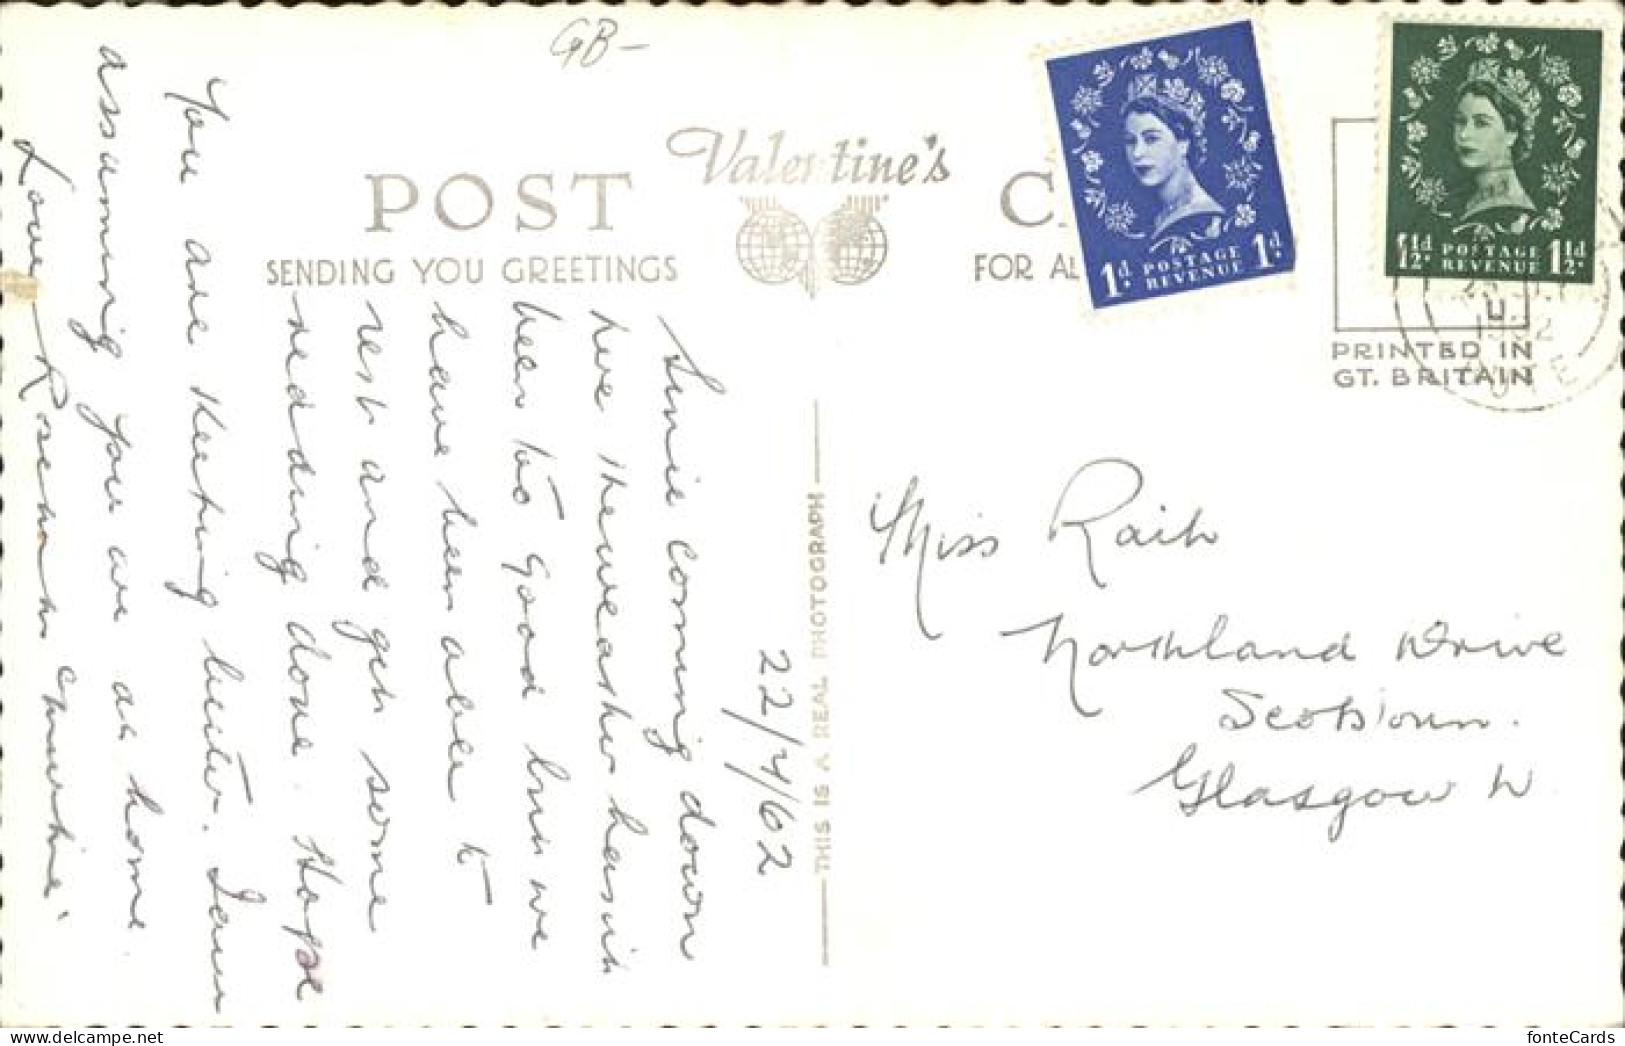 GB-
Valentine's
POST
SENDING YOU GREETINGS
FOR AL
1d POSTAGE REVENUE 1d
1½d POSTAGE REVENUE 1½d
PRINTED IN
GT. BRITAIN
THIS IS A REAL PHOTOGRAPH
22/4/62
Sinie coming down
here the weather hasnih
been to good but we
have been able to
rest and get some
redding done. Hope
You are Keeping better. I am
assuming you are at home.
Love Rosena
Miss Raith
Northland Drive
Scotstoun.
Glasgow W
fonteCards